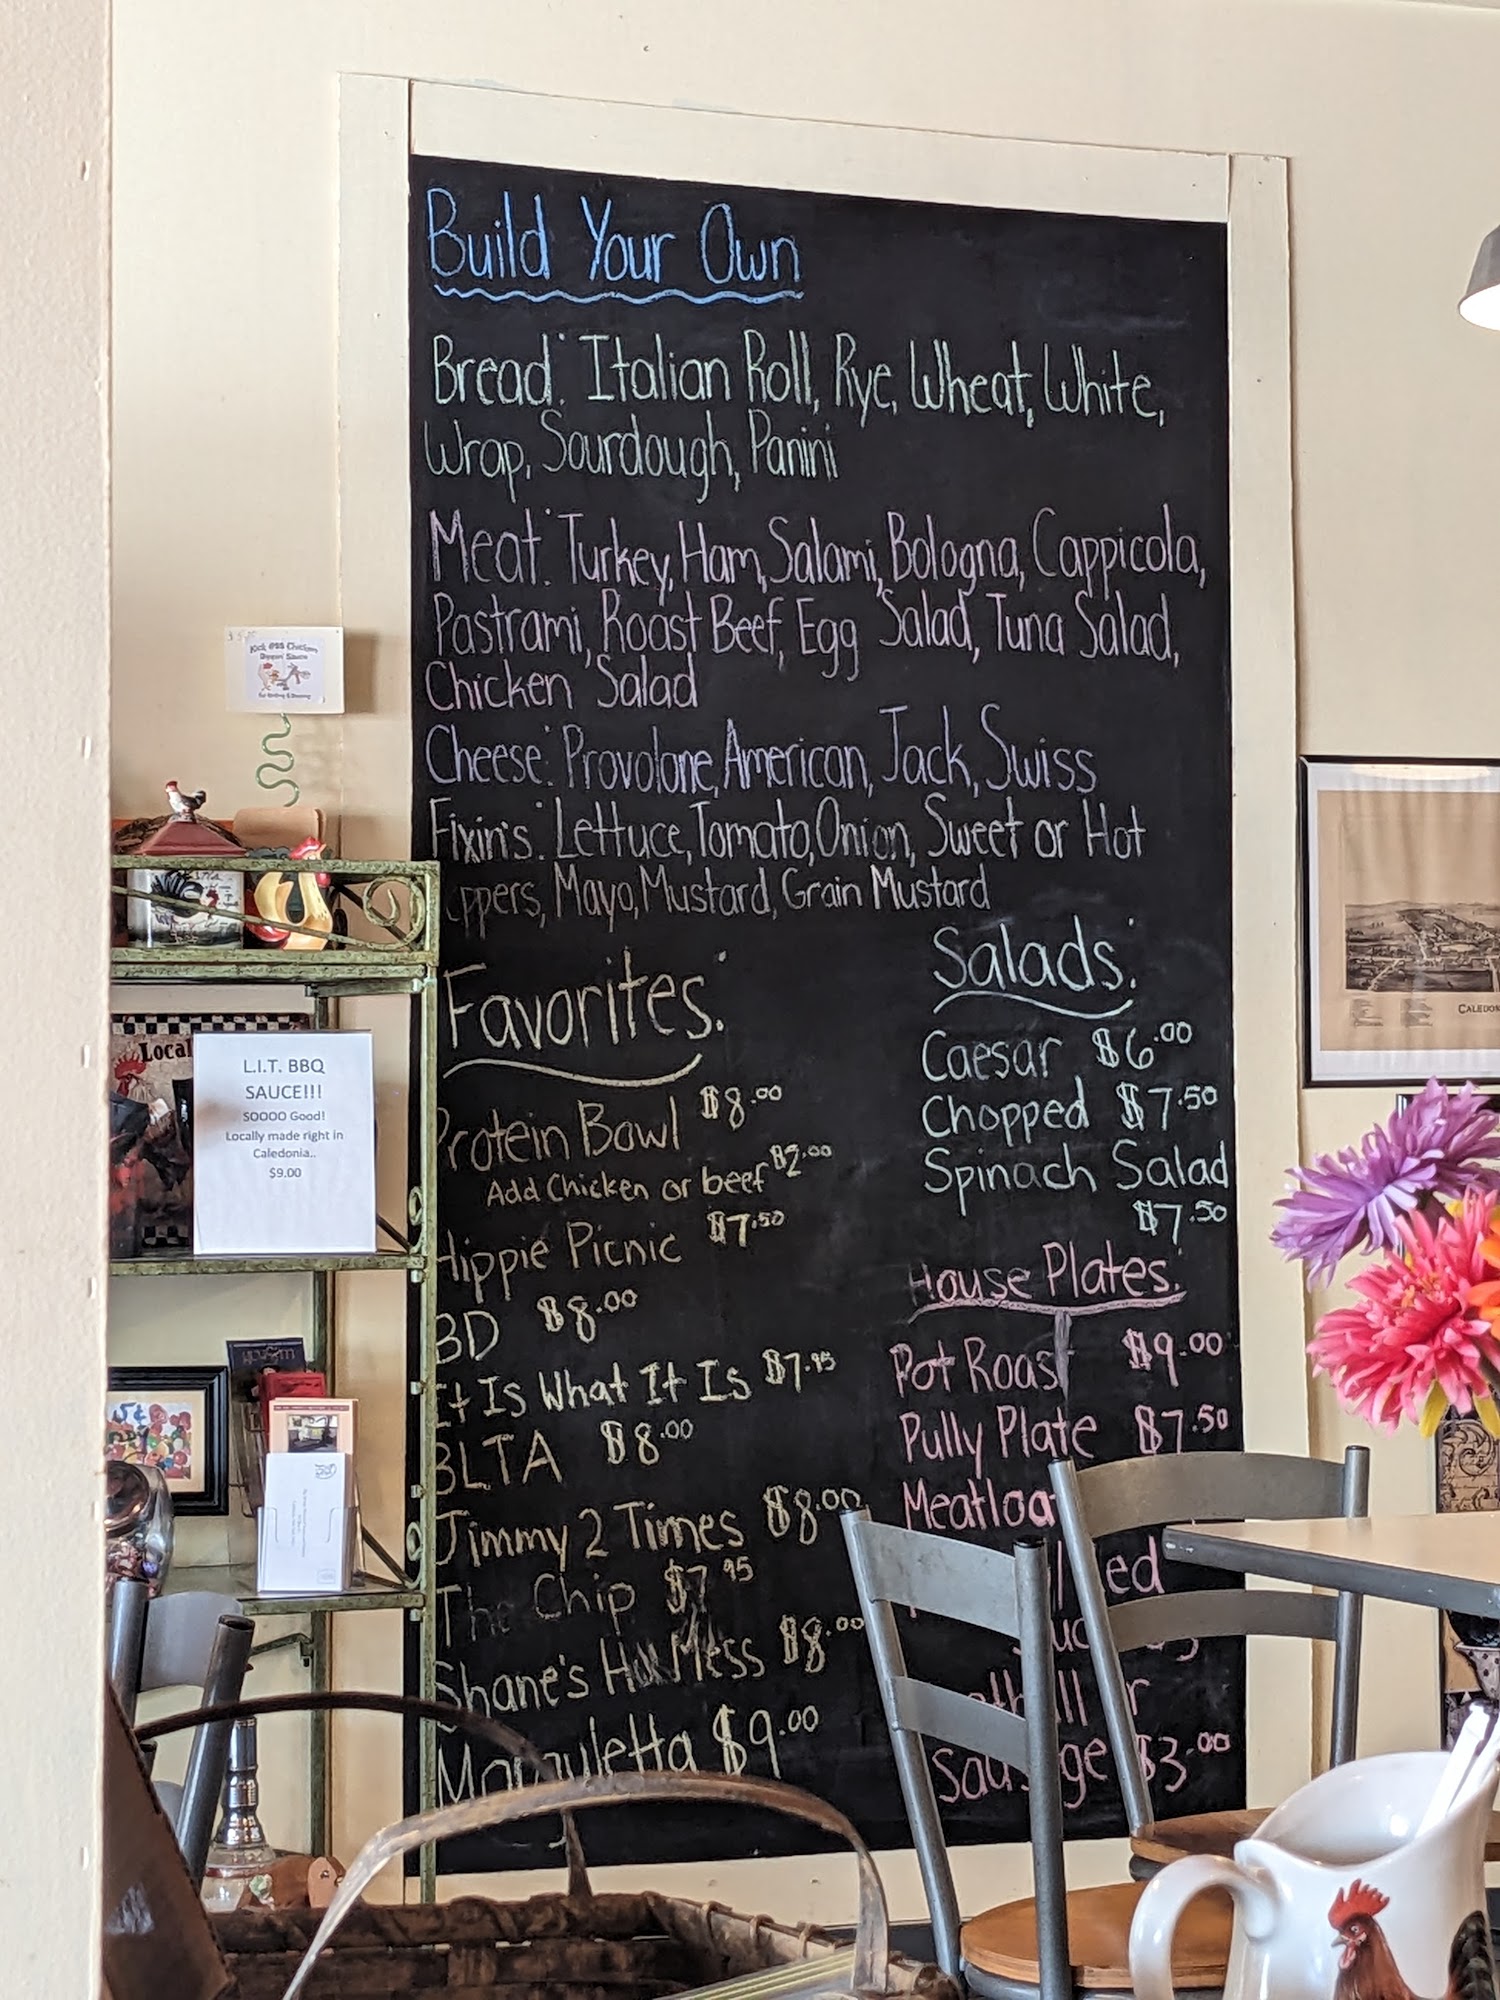 Build Your Own
Bread: Italian Roll, Rye, Wheat, White,
Wrap, Sourdough, Panini
Meat: Turkey, Ham, Salami, Bologna, Cappicola,
Pastrami, Roast Beef, Egg Salad, Tuna Salad,
Chicken Salad
Cheese: Provolone, American, Jack, Swiss
Fixin's: Lettuce, Tomato, Onion, Sweet or Hot
ppers, Mayo, Mustard, Grain Mustard
Favorites:
Protein Bowl $8.00
Add Chicken or beef $2.00
Hippie Picnic $7.50
BD $8.00
It Is What It Is $7.95
BLTA $8.00
Jimmy 2 Times $8.00
The Chip $7.95
Shane's Hot Mess $8.00
$9.00
Salads:
Caesar $6.00
Chopped $7.50
Spinach Salad
$7.50
House Plates:
Pot Roast $9.00
Pully Plate $7.50
Meatloa
ed
r
Sausage $3.00
Kick ass Chicken
Dippin' Sauce
Local
L.I.T. BBQ
SAUCE!!!
SOOOO Good!
Locally made right in
Caledonia..
$9.00
5¢
CALEDON